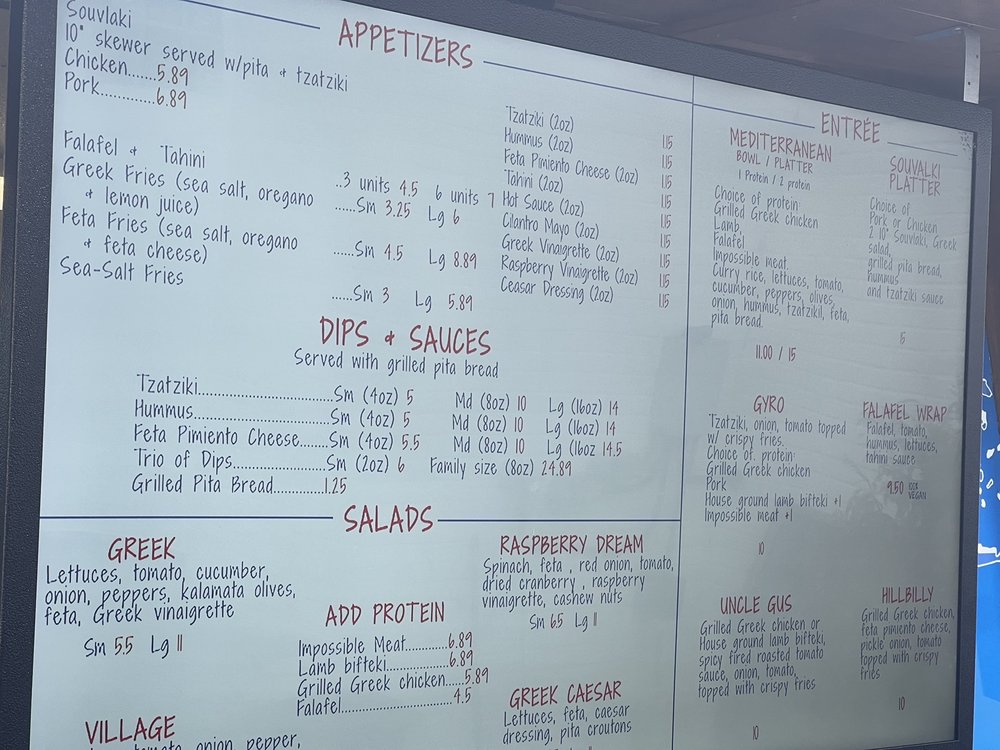 APPETIZERS
Souvlaki
10" skewer served w/pita & tzatziki
Chicken.......5.89
Pork............6.89
Falafel & Tahini ..3 units 4.5 6 units 7
Greek Fries (sea salt, oregano
& lemon juice) ......Sm 3.25 Lg 6
Feta Fries (sea salt, oregano
& feta cheese) ......Sm 4.5 Lg 8.89
Sea-Salt Fries ......Sm 3 Lg 5.89
Tzatziki (2oz) 1.15
Hummus (2oz) 1.15
Feta Pimiento Cheese (2oz) 1.15
Tahini (2oz) 1.15
Hot Sauce (2oz) 1.15
Cilantro Mayo (2oz) 1.15
Greek Vinaigrette (2oz) 1.15
Raspberry Vinaigrette (2oz) 1.15
Ceasar Dressing (2oz) 1.15
DIPS & SAUCES
Served with grilled pita bread
Tzatziki......................Sm (4oz) 5 Md (8oz) 10 Lg (16oz) 14
Hummus.......................Sm (4oz) 5 Md (8oz) 10 Lg (16oz) 14
Feta Pimiento Cheese.......Sm (4oz) 5.5 Md (8oz) 10 Lg (16oz 14.5
Trio of Dips...................Sm (2oz) 6 Family size (8oz) 24.89
Grilled Pita Bread.............1.25
SALADS
GREEK
Lettuces, tomato, cucumber,
onion, peppers, kalamata olives,
feta, Greek vinaigrette
Sm 5.5 Lg 11
VILLAGE
tomato, onion, pepper,
ADD PROTEIN
Impossible Meat..........6.89
Lamb bifteki..............6.89
Grilled Greek chicken.....5.89
Falafel........................4.5
RASPBERRY DREAM
Spinach, feta , red onion, tomato,
dried cranberry , raspberry
vinaigrette, cashew nuts
Sm 6.5 Lg 11
GREEK CAESAR
Lettuces, feta, caesar
dressing, pita croutons
11
ENTRÉE
MEDITERRANEAN
BOWL / PLATTER
1 Protein / 2 protein
Choice of protein:
Grilled Greek chicken
Lamb,
Falafel
Impossible meat
Curry rice, lettuces, tomato,
cucumber, peppers, olives,
onion, hummus, tzatzikil, feta,
pita bread.
11.00 / 15
SOUVALKI
PLATTER
Choice of
Pork or Chicken
2 10" Souvlaki, Greek
salad,
grilled pita bread,
hummus
and tzatziki sauce
15
GYRO
Tzatziki, onion, tomato topped
w/ crispy fries.
Choice of protein:
Grilled Greek chicken
Pork
House ground lamb bifteki +1
Impossible meat +1
10
FALAFEL WRAP
Falafel, tomato,
hummus, lettuces,
tahini sauce
9.50 100% VEGAN
UNCLE GUS
Grilled Greek chicken or
House ground lamb bifteki,
spicy fired roasted tomato
sauce, onion, tomato,
topped with crispy fries
10
HILLBILLY
Grilled Greek chicken,
feta pimiento cheese,
pickle onion, tomato
topped with crispy
fries
10